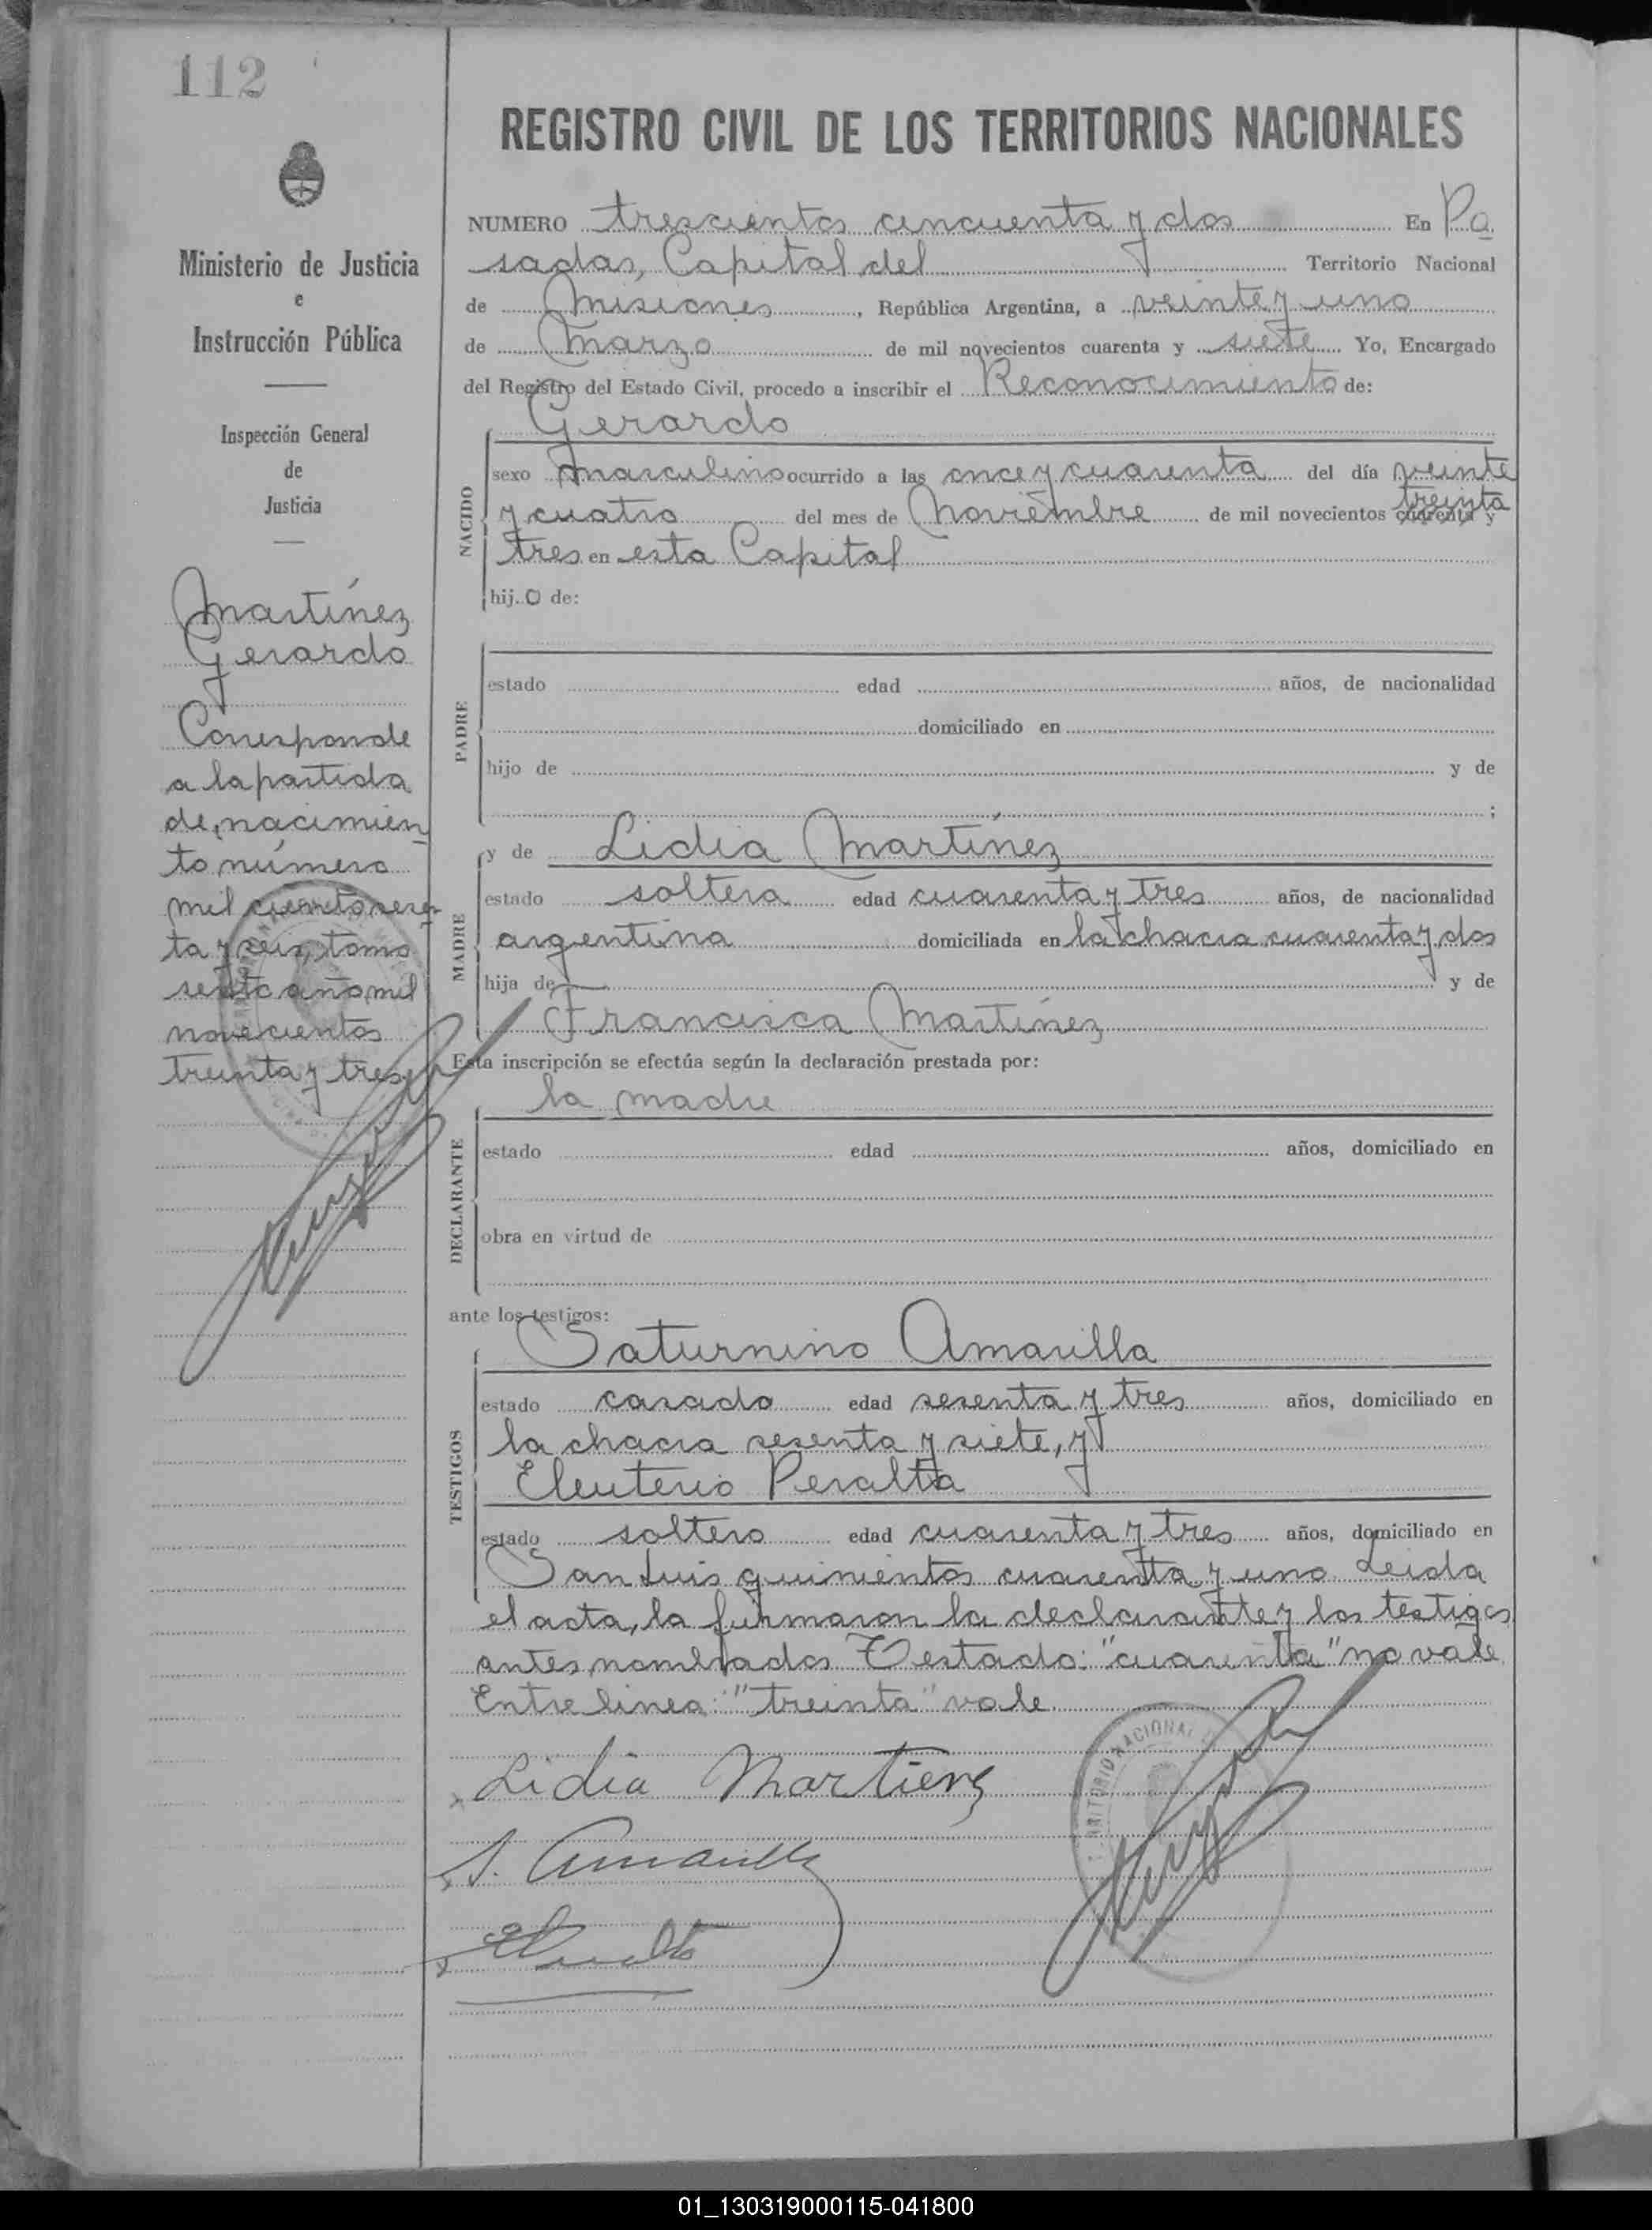 112
REGISTRO CIVIL DE LOS TERRITORIOS NACIONALES
Ministerio de Justicia
e
Instrucción Pública
Inspección General
de
Justicia
Martínez
Gerardo
Corresponde
a la partida
de nacimien
to número
mil ciento sesen
ta y seis, tomo
sexto año mil
novecientos
treinta y tres
NUMERO trescientos cincuenta y dos En Po
sadas, Capital del Territorio Nacional
de Misiones, República Argentina, a veinte y uno
de Marzo de mil novecientos cuarenta y siete Yo, Encargado
del Registro del Estado Civil, procedo a inscribir el Reconocimiento de:
Gerardo
NACIDO
sexo masculino ocurrido a las once y cuarenta del día veinte
treinta
y cuatro del mes de Noviembre de mil novecientos cuarenta y
tres en esta Capital
hijo de:
PADRE
estado edad años, de nacionalidad
domiciliado en
hijo de y de
;
MADRE
y de Lidia Martínez
estado soltera edad cuarenta y tres años, de nacionalidad
argentina domiciliada en la chacra cuarenta y dos
hija de y de
Francisca Martínez
Esta inscripción se efectúa según la declaración prestada por:
la madre
DECLARANTE
estado edad años, domiciliado en
obra en virtud de
ante los testigos:
TESTIGOS
Saturnino Amarilla
estado casado edad sesenta y tres años, domiciliado en
la chacra sesenta y siete, y
Eleuterio Peralta
estado soltero edad cuarenta y tres años, domiciliado en
San Luis quinientos cuarenta y uno Leida
el acta, la firmaron la declarante y los testigos
antes nombrados Testado: "cuarenta" no vale
Entre linea: "treinta" vale
Lidia Martienz
S. Amarilla
E Peralta
TERRITORIO NACIONAL
01_130319000115-041800